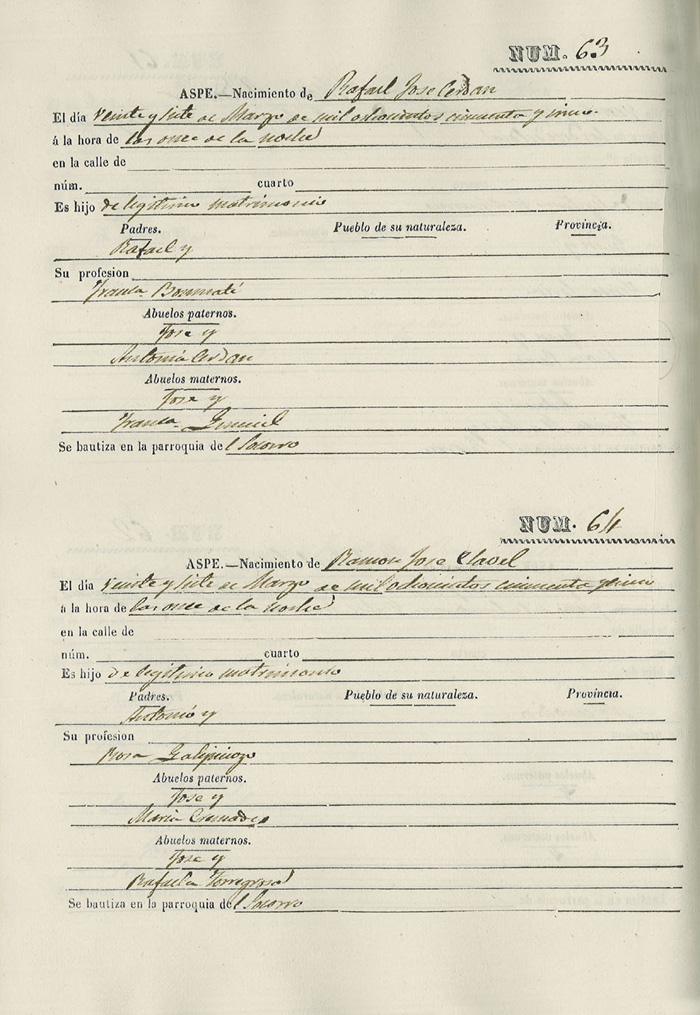 NUM. 63
ASPE.—Nacimiento de Rafael Jose Cerdan
El día Veinte y siete de Marzo de mil ochocientos cincuenta y cinco
á la hora de las once de la noche
en la calle de
núm. cuarto
Es hijo de legitimo matrimonio
Padres. Pueblo de su naturaleza. Provincia.
Rafael y
Su profesion
Franca Bonmatí
Abuelos paternos.
Jose y
Antonia Cerdan
Abuelos maternos.
Jose y
Franca
Se bautiza en la parroquia del Socorro
NUM. 64
ASPE.—Nacimiento de Ramon Jose Clavel
El día Veinte y siete de Marzo de mil ochocientos cincuenta y cinco
á la hora de las once de la noche
en la calle de
núm. cuarto
Es hijo de legitimo matrimonio
Padres. Pueblo de su naturaleza. Provincia.
Antonio y
Su profesion
Rosa Galipienzo
Abuelos paternos.
Jose y
Maria Cremades
Abuelos maternos.
Jose y
Rafaela Torregrosa
Se bautiza en la parroquia del Socorro